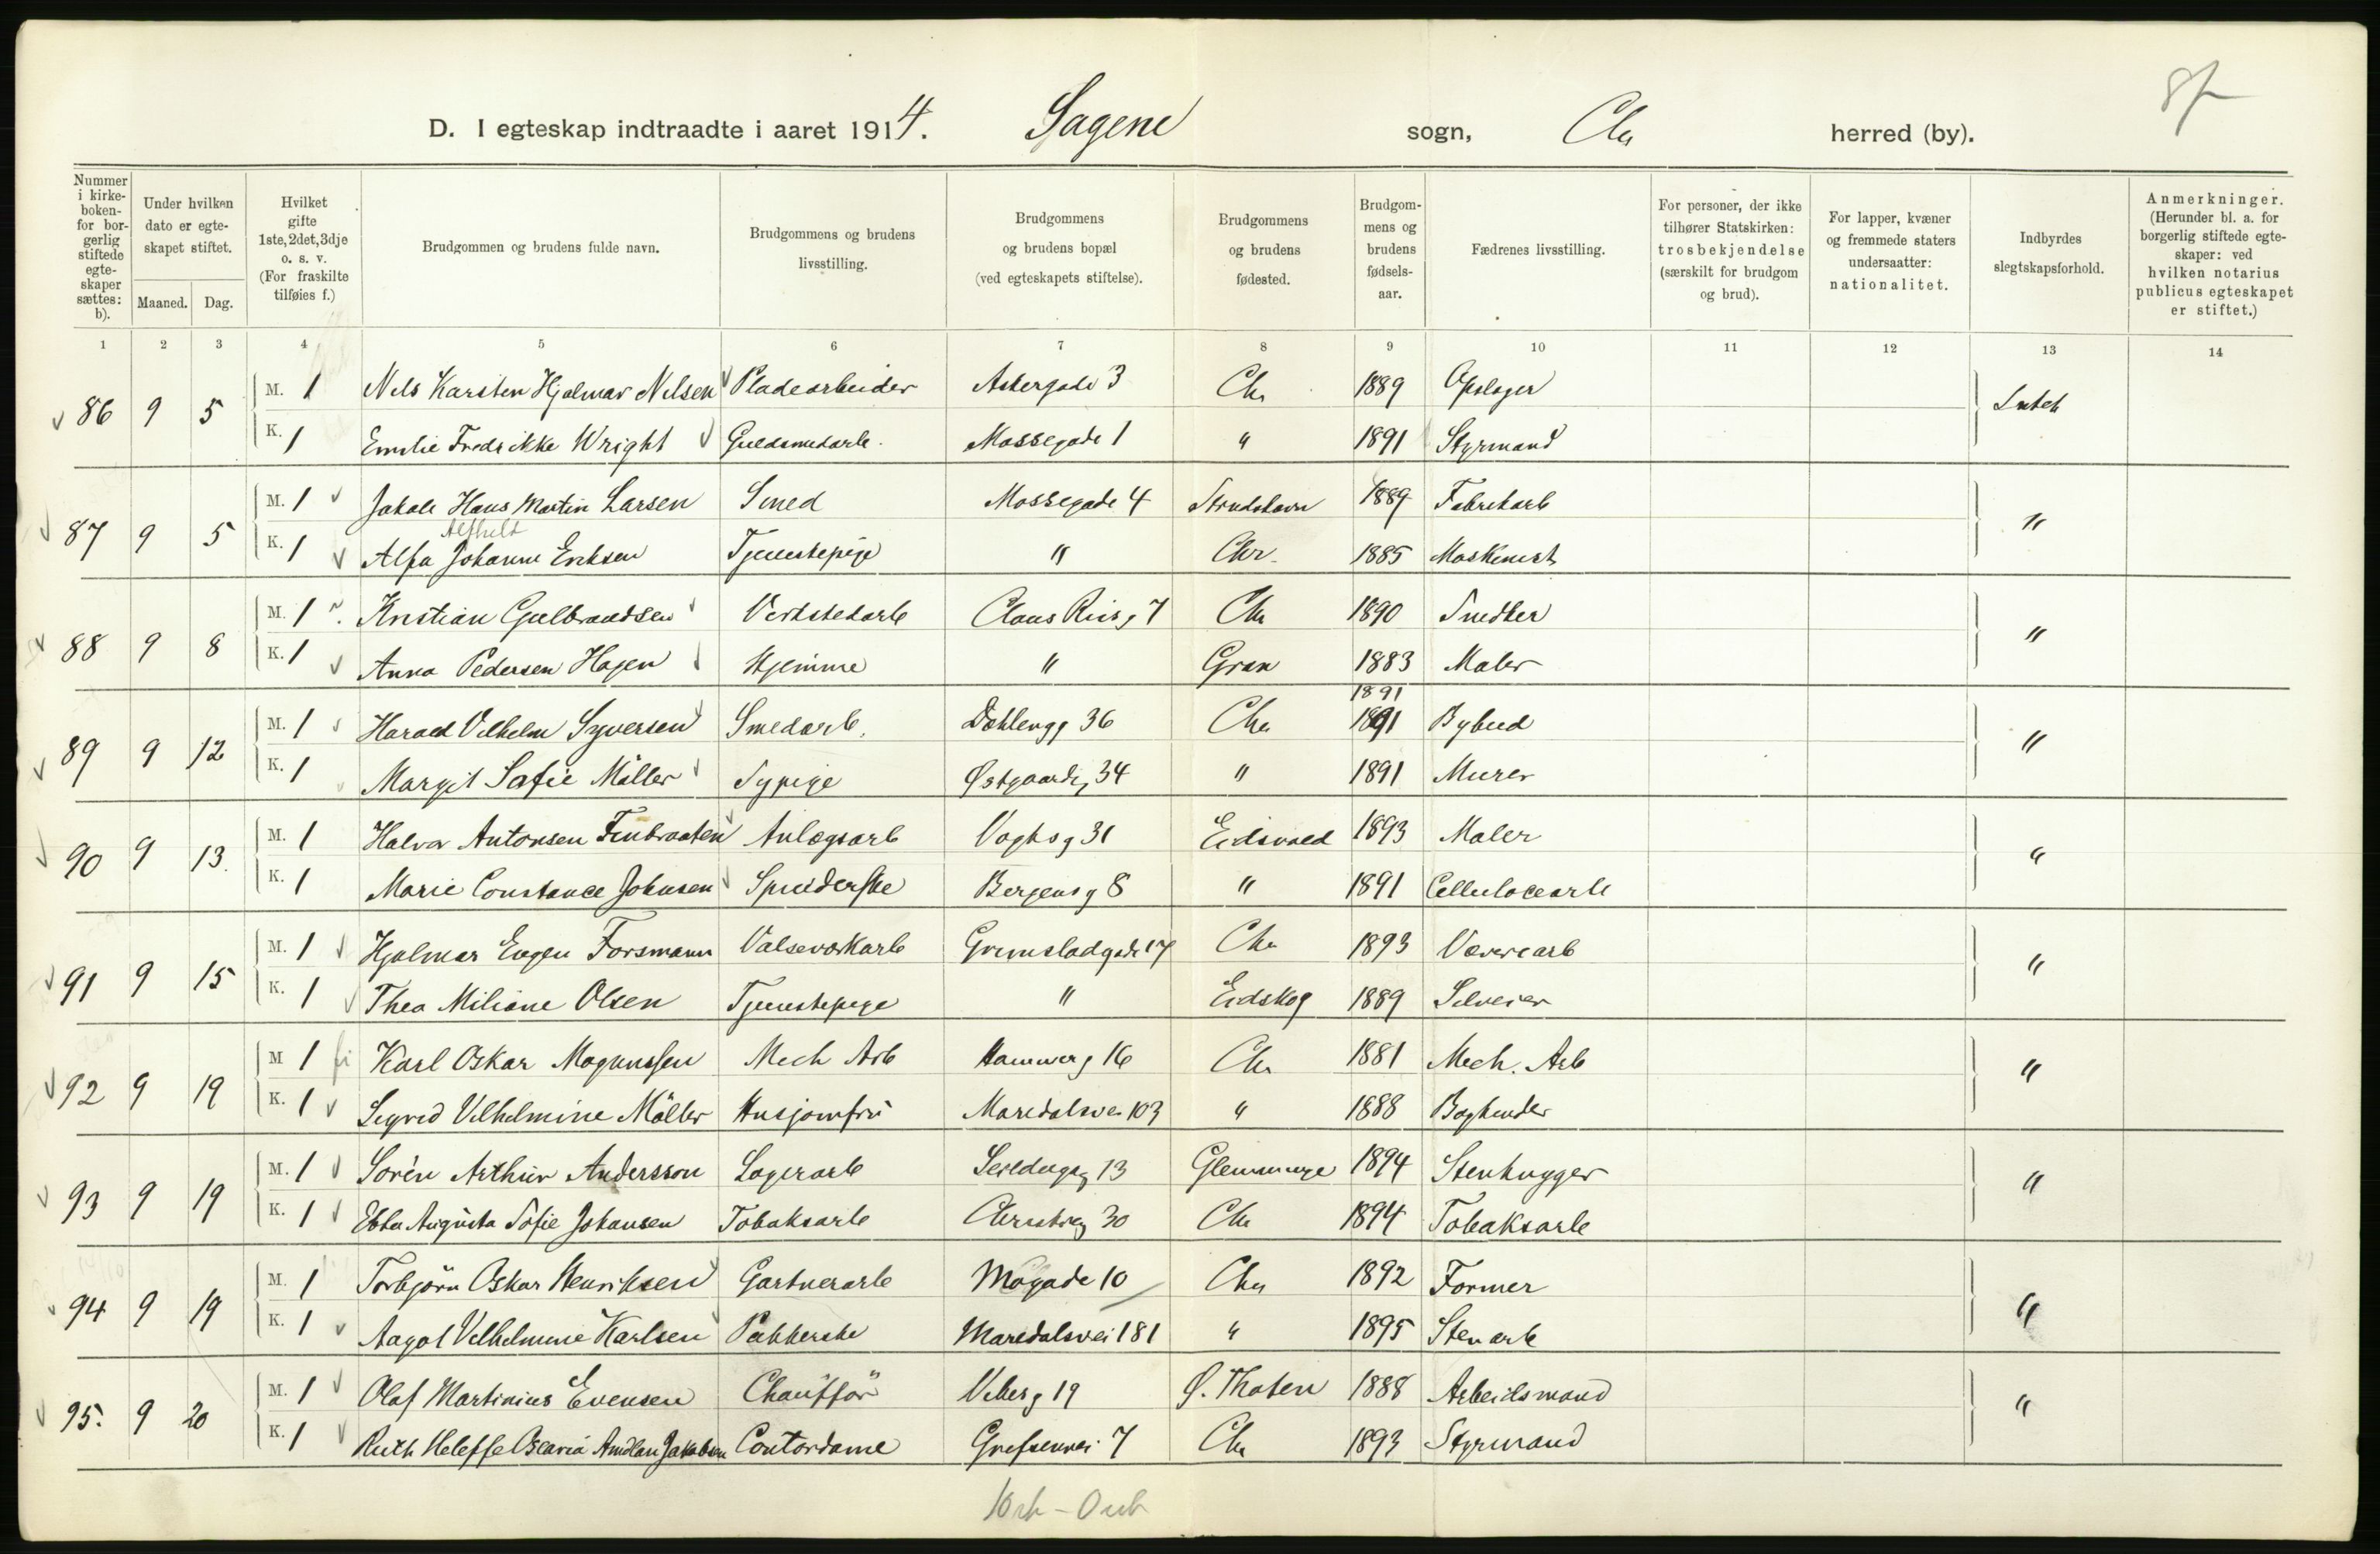 D. I egteskap indtraadte i aaret 1914. Sagene sogn, Chr herred (by).
Nummer i kirke-boken- for bor-gerlig stiftede egte-skaper sættes: b).
Under hvilken dato er egte-skapet stiftet.
Maaned. Dag.
Hvilket gifte 1ste, 2det, 3dje o. s. v. (For fraskilte tilføies f.)
Brudgommen og brudens fulde navn.
Brudgommens og brudens livsstilling.
Brudgommens og brudens bopæl (ved egteskapets stiftelse).
Brudgommens og brudens fødested.
Brudgom-mens og brudens fødsels-aar.
Fædrenes livsstilling.
For personer, der ikke tilhører Statskirken: trosbekjendelse (særskilt for brudgom og brud).
For lapper, kvæner og fremmede staters undersaatter: nationalitet.
Indbyrdes slegtskapsforhold.
Anmerkninger. (Herunder bl. a. for borgerlig stiftede egte-skaper: ved hvilken notarius publicus egteskapet er stiftet.)
1 2 3 4 5 6 7 8 9 10 11 12 13 14
86 9 5 M. 1 Nils Karsten Hjalmar Nilsen Pladearbeider Askergade 3 Chr 1889 Opslager Intet
K. 1 Emilie Fredrikke Wright Guldsmedarb. Mossegade 1 " 1891 Styrmand
87 9 5 M. 1 Jakob Hans Martin Larsen Smed Mossegade 4 1889 Fabrikarb "
Alfhild
K. 1 Alfa Johanne Eriksen Tjenestepige " Chr. 1885 Maskinist
88 9 8 M. 1 Kristian Gulbrandsen Verkstedarb Claus Riisg 7 Chr 1890 Snedker "
K. 1 Anna Pedersen Hagen Hjemme " Gran 1883 Maler
1891
89 9 12 M. 1 Harald Vilhelm Syversen Smedarb. Dahlengg 36 Chr 1891 Bybud "
K. 1 Margit Sofie Möller Sypige Østgaardg 34 " 1891 Murer
90 9 13. M. 1 Halvor Antonsen Finbraaten Anlægsarb Vogtsg 31 Eidsvold 1893 Maler "
K. 1 Marie Constance Johnsen Spinderske Bergensg 8 " 1891 Cellulocearb
91 9 15 M. 1 Hjalmar Eugen Forsmann Valseværkarb Grimstadgade 17 Chr 1893 Væverearb "
K. 1 Thea Miliane Olsen Tjenestepige " Eidskog 1889 Selveier
92 9 19 M 1 Karl Oskar Magnussen Mech Arb Hammerg 16 Chr 1881 Mech. Arb "
K. 1 Sigrid Vilhelmine Möller Husjomfru Maridalsvei 103 " 1888 Bogbinder
93 9 19 M. 1 Sorén Arthur Andersson Lagerarb Seildugsg 13 Glemminge 1894 Stenhugger "
K. 1 Ebba Augusta Sofie Johansen Tobaksarb 30 Chr 1894 Tobaksarb
94 9 19 M. 1 Torbjörn Oskar Henriksen Gartnerarb Mogade 10 Chr 1892 Former "
K. 1 Aagot Vilhelmine Karlsen Pakkerske Maridalsvei 181 " 1895 Stenarb
95. 9 20 M. 1 Olaf Martinius Evensen Chauffør Vibesg 19 Ø. Thoten 1888 Arbeidsmand "
K. 1 Ruth Jakobsen Contordame Grefsenvei 7 Chr 1893 Styrmand